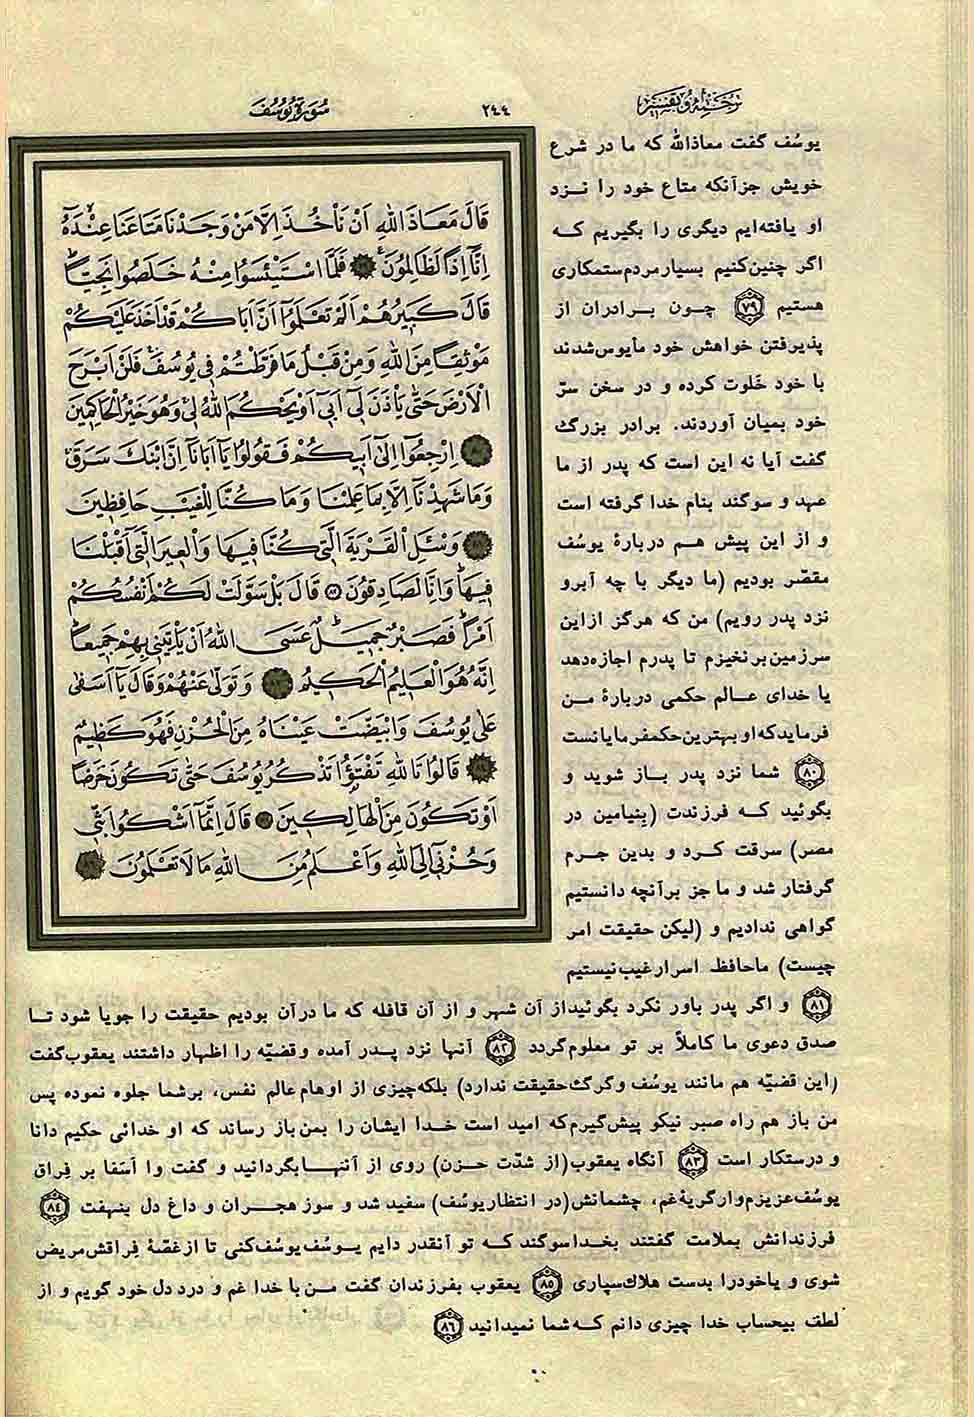 ترجمه و تفسیر
۲۴۴
سُورَةُ يُوسُفَ
یوسُف گفت معاذالله که ما در شرع
خویش جزآنکه متاع خود را نـزد
او یافته‌ایم دیگری را بگیریم کـه
اگر چنین‌کنیم بسیارمردم‌ستمکاری
هستیم ۷۹ چـون بـرادران از
پذیرفتن خواهش خود مأیوس‌شدند
با خود خَلوت کرده و در سخن سرّ
خود بمیان آوردند. برادر بزرگ
گفت آیا نه این است که پدر از ما
عهد و سوگند بنام خدا گرفته است
و از این پیش هـم دربارهٔ یوسُف
مقصّر بودیم (ما دیگر با چه آبرو
نزد پدر رویم) من که هرگز ازاین
سرزمین‌برنخیزم تا پدرم اجازه‌دهد
یا خدای عـالم حکمی دربارهٔ مـن
فرمایدکه‌او بهترین‌حکمفرمایانست
۸۰ شما نزد پدر بـاز شوید و
بگوئید کـه فرزندت (بِنیامین در
مصر) سرقت کـرد و بدین جـرم
گرفتار شد و ما جز برآنچه دانستیم
گواهی ندادیم و (لیکن حقیقت امر
چیست) ماحافظ اسرارغیب‌نیستیم
قَالَ مَعَاذَ اللهِ اَنْ نَأْخُذَ اِلَّا مَنْ وَجَدْنَا مَتَاعَنَا عِنْدَهُٓ
اِنَّٓا اِذًا لَظَالِمُونَ ۷۹ فَلَمَّا اسْتَيْـَٔسُوا مِنْهُ خَلَصُوا نَجِيًّاۜ
قَالَ كَبِيرُهُمْ اَلَمْ تَعْلَمُٓوا اَنَّ اَبَاكُمْ قَدْ اَخَذَ عَلَيْكُمْ
مَوْثِقًا مِنَ اللهِ وَمِنْ قَبْلُ مَا فَرَّطْتُمْ فِي يُوسُفَۚ فَلَنْ اَبْرَحَ
الْاَرْضَ حَتّٰى يَأْذَنَ لِٓي اَبِٓي اَوْ يَحْكُمَ اللهُ لِيۚ وَهُوَ خَيْرُ الْحَاكِمِينَ
۸۰ اِرْجِعُٓوا اِلٰٓى اَبِيكُمْ فَقُولُوا يَٓا اَبَانَٓا اِنَّ ابْنَكَ سَرَقَۚ
وَمَا شَهِدْنَٓا اِلَّا بِمَا عَلِمْنَا وَمَا كُنَّا لِلْغَيْبِ حَافِظِينَ
۸۱ وَسْـَٔلِ الْقَرْيَةَ الَّتِي كُنَّا فِيهَا وَالْعِيرَ الَّتِٓي اَقْبَلْنَا
فِيهَاۜ وَاِنَّا لَصَادِقُونَ ۸۲ قَالَ بَلْ سَوَّلَتْ لَكُمْ اَنْفُسُكُمْ
اَمْرًاۜ فَصَبْرٌ جَمِيلٌۜ عَسَى اللهُ اَنْ يَأْتِيَنِي بِهِمْ جَمِيعًاۜ
اِنَّهُ هُوَ الْعَلِيمُ الْحَكِيمُ ۸۳ وَتَوَلّٰى عَنْهُمْ وَقَالَ يَٓا اَسَفٰى
عَلٰى يُوسُفَ وَابْيَضَّتْ عَيْنَاهُ مِنَ الْحُزْنِ فَهُوَ كَظِيمٌ
۸۴ قَالُوا تَاللهِ تَفْتَؤُا تَذْكُرُ يُوسُفَ حَتّٰى تَكُونَ حَرَضًا
اَوْ تَكُونَ مِنَ الْهَالِكِينَ ۸۵ قَالَ اِنَّمَٓا اَشْكُوا بَثِّي
وَحُزْنِٓي اِلَى اللهِ وَاَعْلَمُ مِنَ اللهِ مَا لَا تَعْلَمُونَ ۸۶
۸۱ و اگر پدر باور نکرد بگوئیداز آن شهر و از آن قافله که ما درآن بودیم حقیقت را جویا شود تـا
صدق دعوی ما کاملاً بر تو معلوم‌گردد ۸۲ آنها نزد پـدر آمده وقضیّه را اظهار داشتند یعقوب‌گفت
(این قضیّه هم مانند یوسُف وگرگ‌حقیقت ندارد) بلکه‌چیزی از اوهام‌عالم نفس، برشما جلوه نموده پس
من باز هم راه صبر نیکو پیش‌گیرم‌که امید است خـدا ایشان را بمن‌باز رساند که او خدائی حکیم دانا
و درستکار است ۸۳ آنگاه یعقوب(از شدّت حـزن) روی از آنهـابگردانید و گفت وا اَسَفا بر فِراق
یوسُف‌عزیزم‌وازگریهٔ‌غم، چشمانش(در انتظاریوسُف) سفید شد و سوز هجـران و داغ دل بنهفت ۸۴
فرزندانش بملامت گفتند بخداسوگند کـه تو آنقدر دایم یـوسُف‌یوسُف‌کنی تا ازغصّهٔ فِراقش‌مریض
شوی و یاخودرا بدست هلاك‌سپاری ۸۵ یعقوب بفرزندان گفت مـن‌با خدا غم و درد دل خود گویم و از
لطف بیحساب خدا چیزی دانم کـه‌شما نمیدانید ۸۶